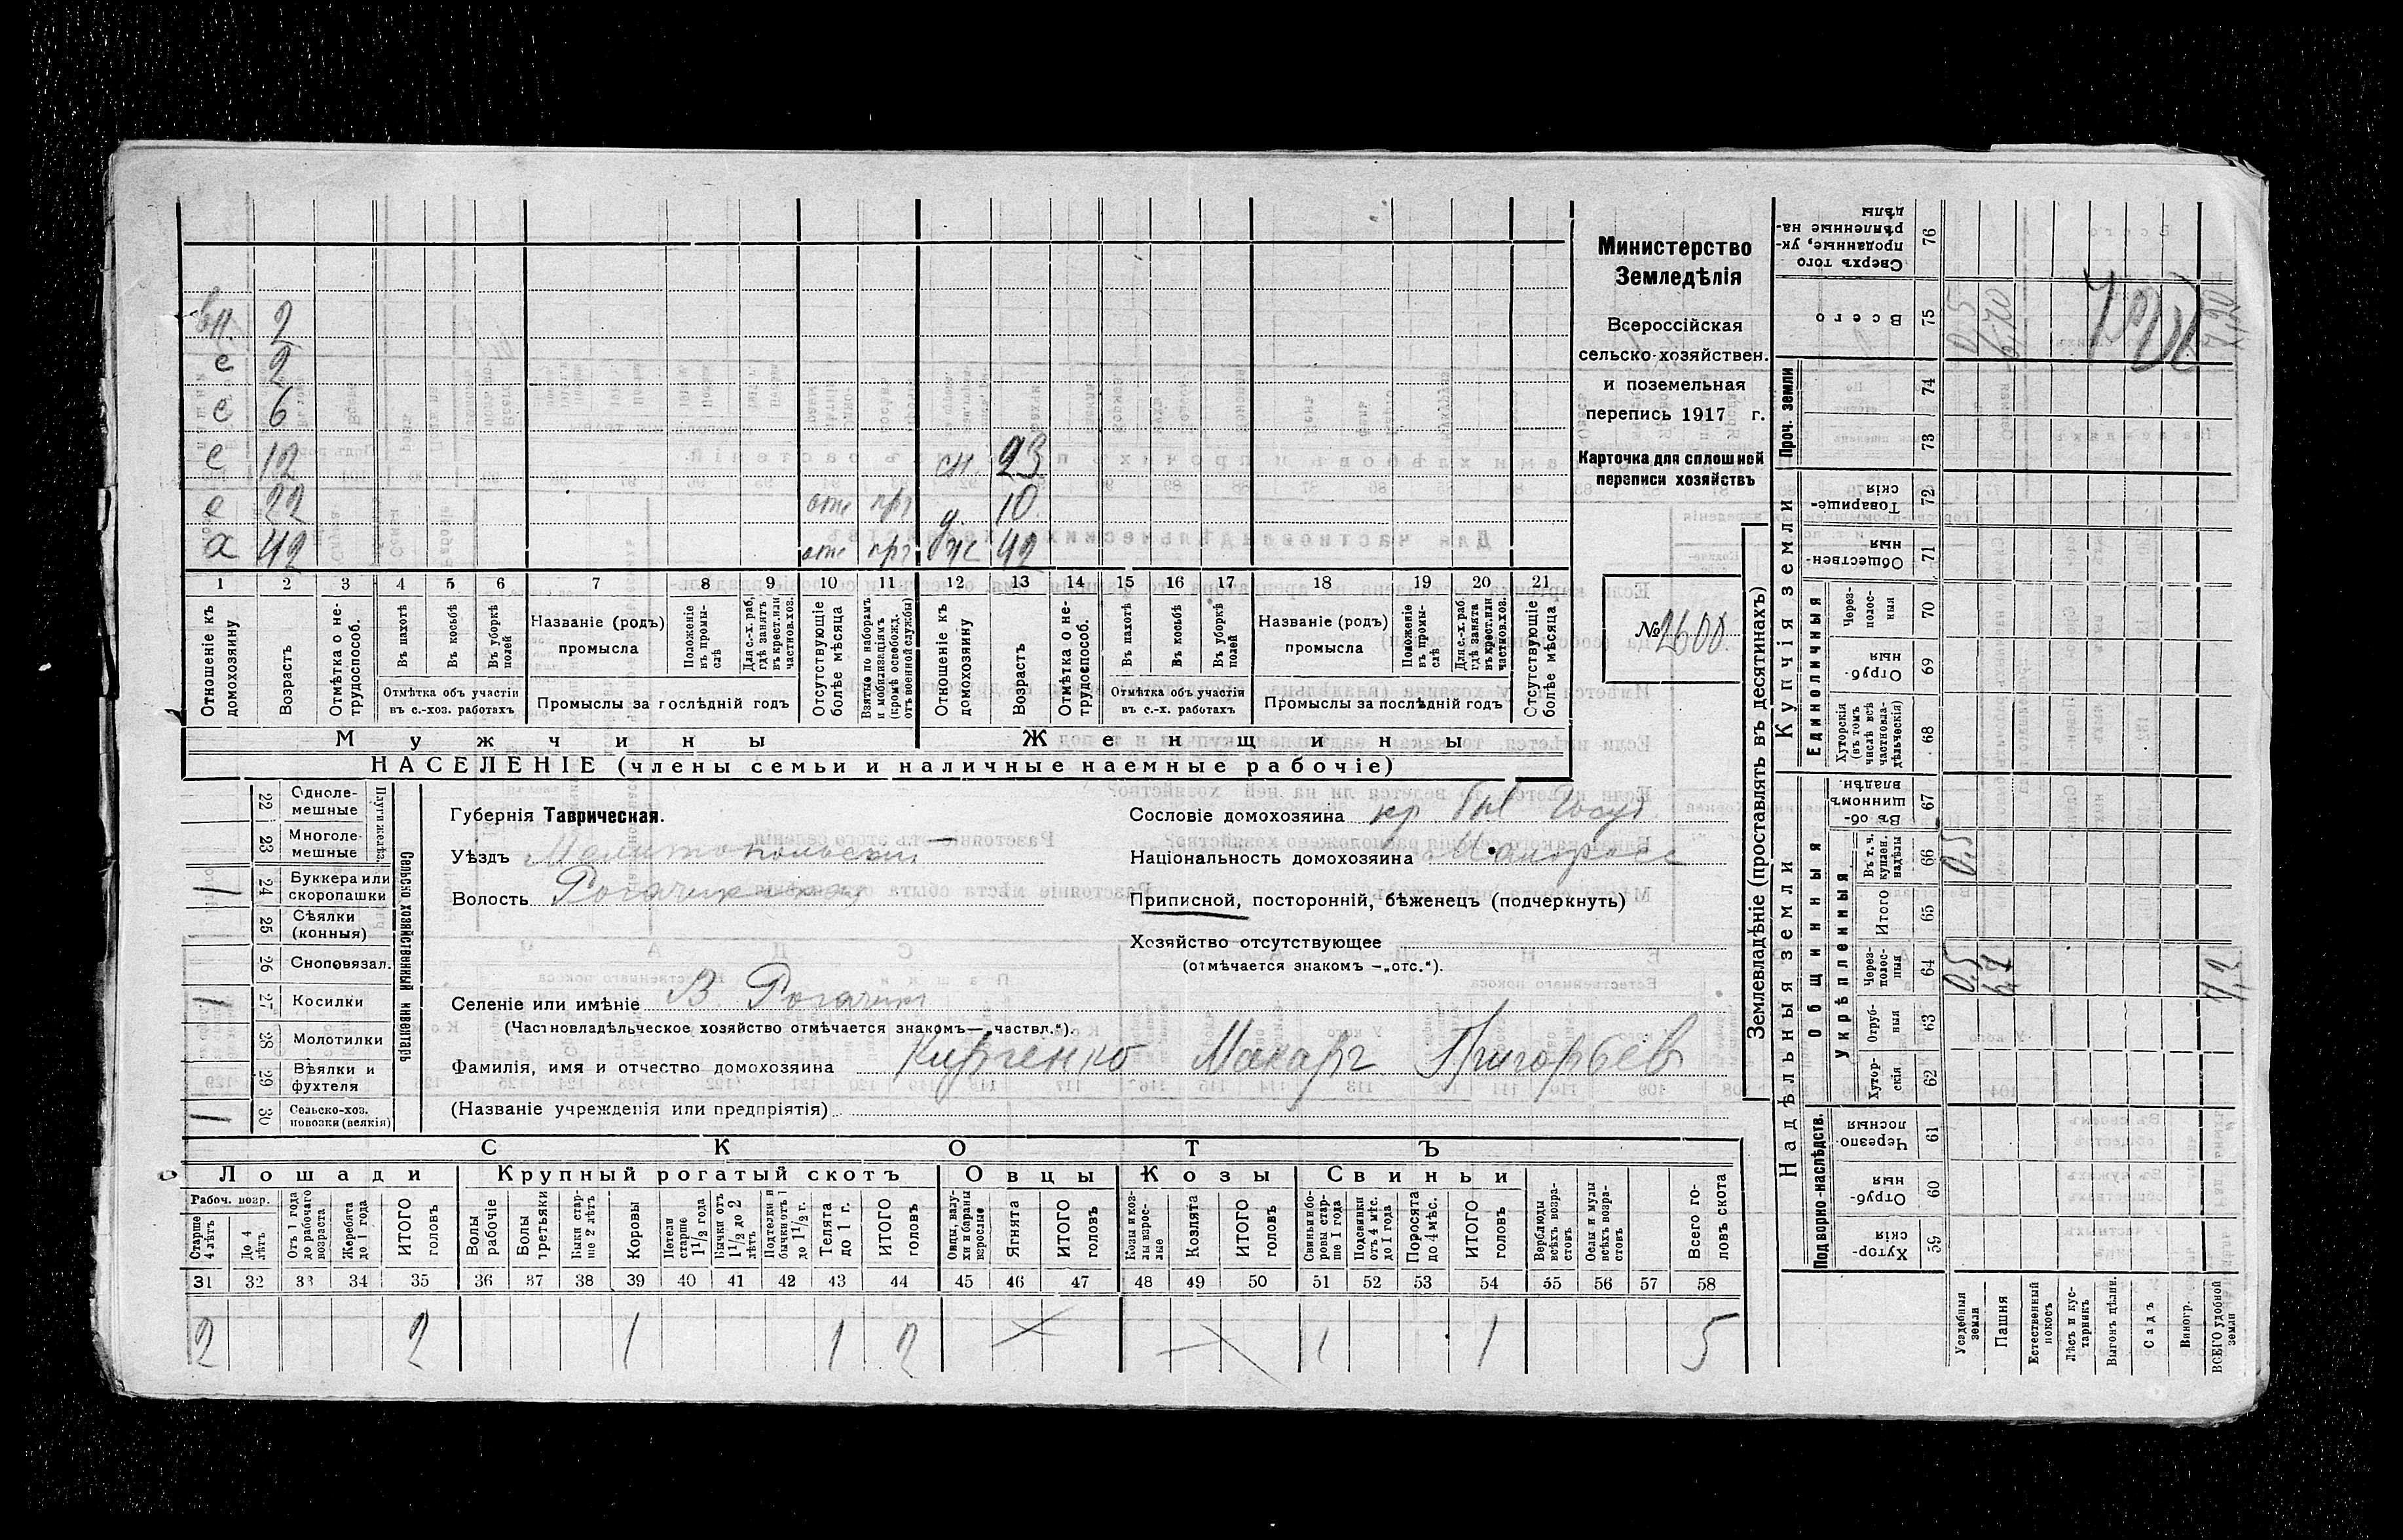 вн. 2
с 2
с 6
с 12 сн. 23
с 22 отс прз д 10
а 42 отс прз ж 42
1 2 3 4 5 6 7 8 9 10 11 12 13 14 15 16 17 18 19 20 21
Отношеніе къ домохозяину
Возрастъ
Отмѣтка о не-трудоспособ.
Въ пахотѣ
Въ косьбѣ
Въ уборкѣ полей
Отмѣтка объ участіи въ с.-хоз. работахъ
Названіе (родъ) промысла
Положеніе въ промы-слѣ
Для с.-х. раб, гдѣ занятъ въ крест. или частнов. хоз.
Промыслы за послѣдній годъ
Отсутствующіе болѣе мѣсяца
Взятые по наборамъ и мобилизаціямъ (кромѣ освобожд. отъ военной службы)
Отношеніе къ домохозяину
Возрастъ
Отмѣтка о не-трудоспособ.
Въ пахотѣ
Въ косьбѣ
Въ уборкѣ полей
Отмѣтка объ участіи въ с.-х. работахъ
Названіе (родъ) промысла
Положеніе въ промы-слѣ
Для с.-х. раб гдѣ занята въ крест. или частнов. хоз.
Промыслы за послѣдній годъ
Отсутствующіе болѣе мѣсяца
Мужчины Женщины
НАСЕЛЕНІЕ (члены семьи и наличные наемные рабочіе)
Министерство
Земледѣлія
Всероссійская
сельско-хозяйствен.
и поземельная
перепись 1917 г.
Карточка для сплошной
переписи хозяйствъ
№ 2600.
22 Однолемешные
23 Многолемешные
Плуги желѣз.
24 Буккера или скоропашки 1
25 Сѣялки (конныя)
26 Сноповязал.
27 Косилки 1
28 Молотилки
29 Вѣялки и фухтеля
30 Сельско-хоз. повозки (всякія) 1
Сельско хозяйственный инвентарь
Губернія Таврическая.
Уѣздъ Мелитопольский
Волость Рогачикская
Селеніе или имѣніе В. Рогачик
(Частновладѣльческое хозяйство отмѣчается знакомъ — „частвл.“).
Фамилія, имя и отчество домохозяина Кирченко Макаръ Григорьев
(Названіе учрежденія или предпріятія)
Сословіе домохозяина кр. Госуд
Національность домохозяина Малоросс
Приписной, посторонній, бѣженецъ (подчеркнуть)
Хозяйство отсутствующее
(отмѣчается знакомъ — „отс.“).
СКОТЪ
Лошади Крупный рогатый скотъ Овцы Козы Свиньи
Рабоч. возр.
Старше 4 лѣтъ
До 4 лѣтъ
Отъ 1 года до рабочаго возраста
Жеребята до 1 года
ИТОГО головъ
Волы рабочіе
Волы третьяки
Быки стар-ше 2 лѣтъ
Коровы
Нетели старше 1 1/2 года
Бычки отъ 1 1/2 до 2 лѣтъ
Подтелки и бычки отъ 1 до 1 1/2 г.
Телята до 1 г.
ИТОГО головъ
Овцы, валу-хи и бараны взрослые
Ягнята
ИТОГО головъ
Козы и коз-лы взрос-лые
Козлята
ИТОГО головъ
Свиньи и бо-ровы стар-ше 1 года
Подсвинки отъ 4 мѣс. до 1 года
Поросята до 4 мѣс.
ИТОГО головъ
Верблюды всѣхъ возра-стовъ
Ослы и мулы всѣхъ возра-стовъ
Всего го-ловъ скота
31 32 33 34 35 36 37 38 39 40 41 42 43 44 45 46 47 48 49 50 51 52 53 54 55 56 57 58
2 2 1 1 2 1 1 5
Землевладѣніе (проставлять въ десятинахъ)
Надѣльныя земли Купчія земли
Проч. земли
Подворно-наслѣдств.
Общинныя
Укрѣпленныя
Единоличныя
Сверхъ того проданные, ук-рѣпленные на-дѣлы 76
Всего 75 0,5 6,70 7,20 7,20
74
73
Товарище-скія 72
Обществен-ныя 71
Черезполос-ныя 70
Отруб-ныя 69
Хуторскія (въ томъ числѣ всѣ частновла-дѣльческія) 68
Въ об-щинномъ владѣн. 67
Въ т. ч. куплен. надѣлы 66 0,5
Итого 65
Через-полос-ныя 64 0,5 6,7 7,2
Отруб-ныя 63
Хутор-скія 62
Черезпо-лосныя 61
Отруб-ныя 60
Хутор-скія 59
Усадебныя земли
Пашня
Естественный покосъ
Лѣсъ и кус-тарникъ
Выгонъ дѣлим.
Садъ
Виногр.
ВСЕГО удобной земли